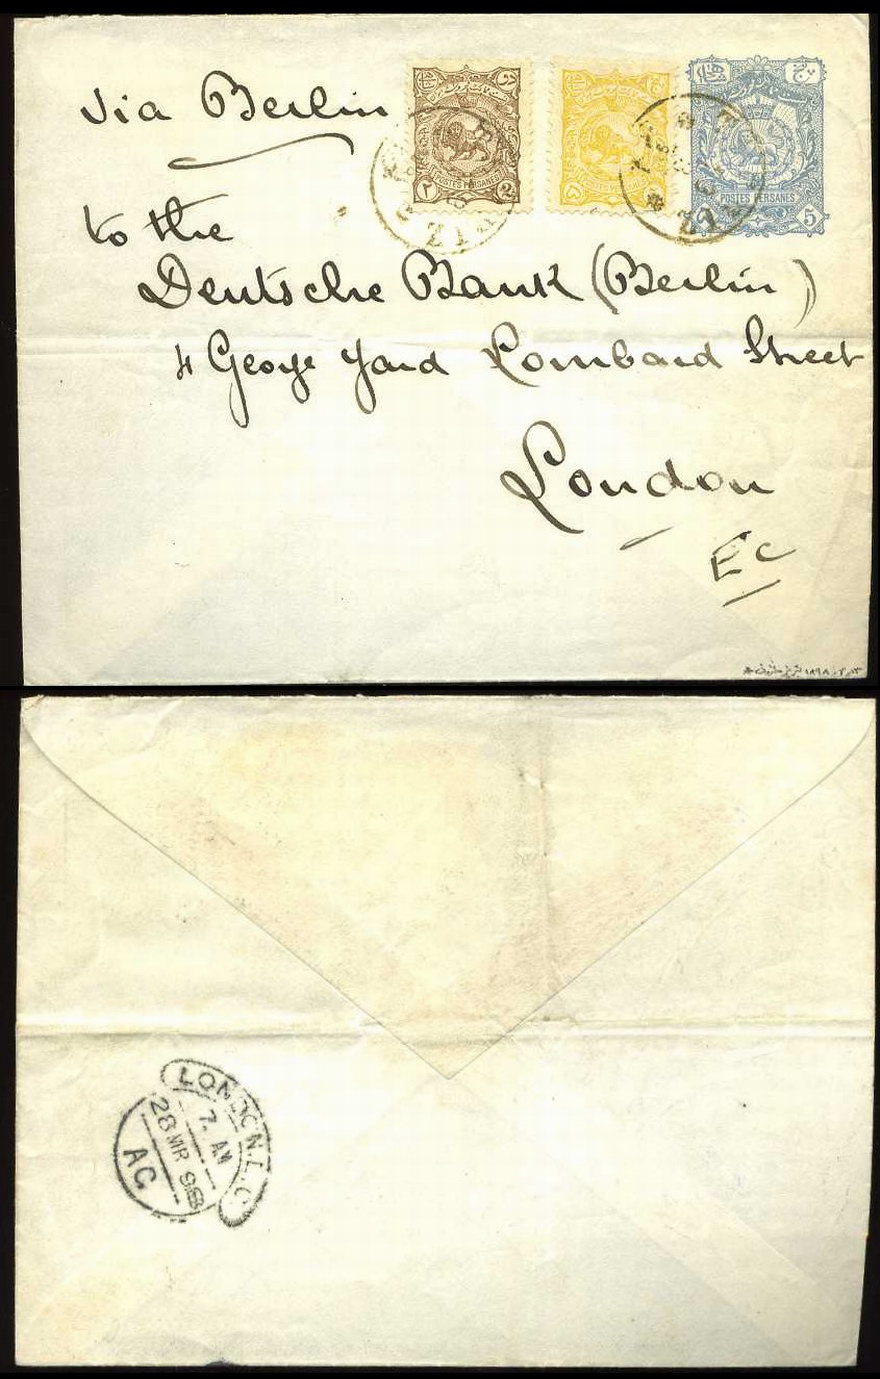 Via Berlin
to the
Deutsche Bank (Berlin)
4 George Yard Lombard Street
London
EC
POSTES PERSANES
۲ 2
POSTES PERSANES
۵
POSTES PERSANES
5
LONDON.E.C
7. AM
28 MR 98
AC